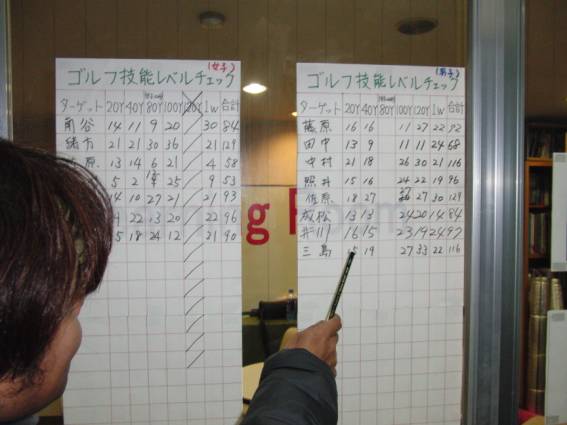 (女子)
ゴルフ技能レベルチェック
ターゲット 20Y 40Y 80Y 100Y 120Y 1W 合計
角谷 14 11 9 20 30 84
緒方 21 21 30 36 21 129
原 13 14 6 21 4 58
5 2 25 9 53
14 10 27 21 21 93
22 13 20 22 96
5 18 24 12 21 90
(男子)
ゴルフ技能レベルチェック
ターゲット 20Y 40Y 80Y 100Y 120Y 1W 合計
藤原 16 16 11 27 22 92
田中 13 9 11 11 24 68
中村 21 18 26 30 21 116
照井 15 16 24 22 19 96
佐原 18 27 27 30 129
放松 13 13 24 20 14 84
井川 16 15 23 19 24 97
三島 15 19 27 33 22 116
ng R